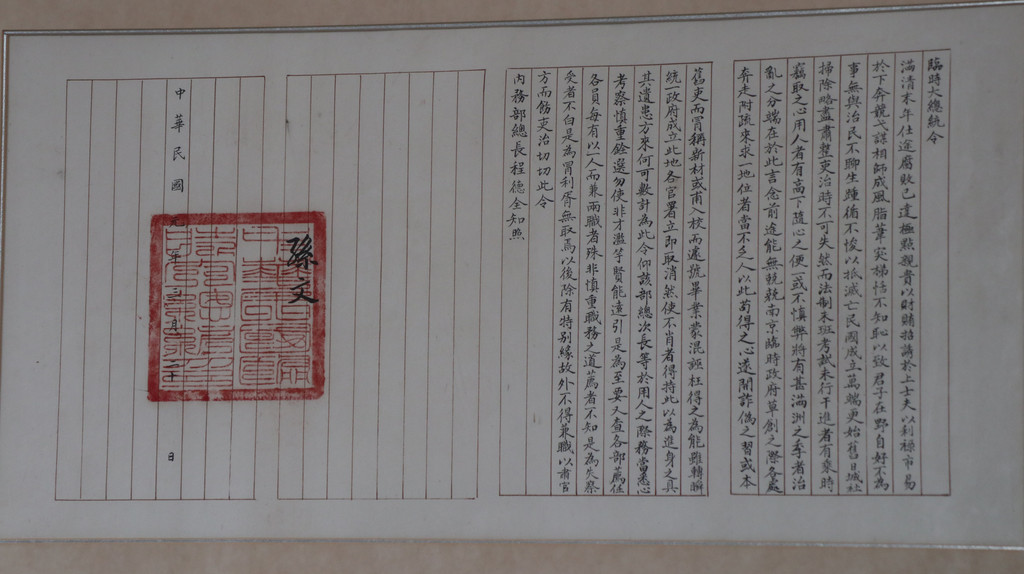 臨時大總統令
滿清末年仕途腐敗已達極點親貴以財賄招誘於上士夫以利祿市易
於下奔競弋謀相師成風脂韋突梯恬不知恥以致君子在野自好不為
事無與治民不聊生踵循不悛以抵滅亡民國成立萬端更始舊日城社
掃除略盡肅整吏治時不可失然而法制未頒考試未行干進者有乘時
竊取之心用人者有高下隨心之便一或不慎弊將有甚滿洲之季者治
亂之分端在於此言念前途能無兢兢南京臨時政府草創之際各處
奔走附疏來求一地位者當不乏人以此苟得之心遂開詐偽之習或本
舊吏而冒稱新材或甫入校而遽號畢業蒙混誣枉得之為能雖轉瞬
統一政府成立此地各官署立即取消然使不肖者得持此以為進身之具
其遺患方來何可數計為此令仰該部總次長等於用人之際務當悉心
考察慎重銓選勿使非才濫竽賢能遠引是為至要又查各部薦任
各員每有以一人而兼兩職者殊非慎重職務之道薦者不知是為失察
受者不白是為冒利胥無取焉以後除有特別緣故外不得兼職以肅官
方而飭吏治切切此令
內務部總長程德全知照
孫文
中華民國元年三月 日